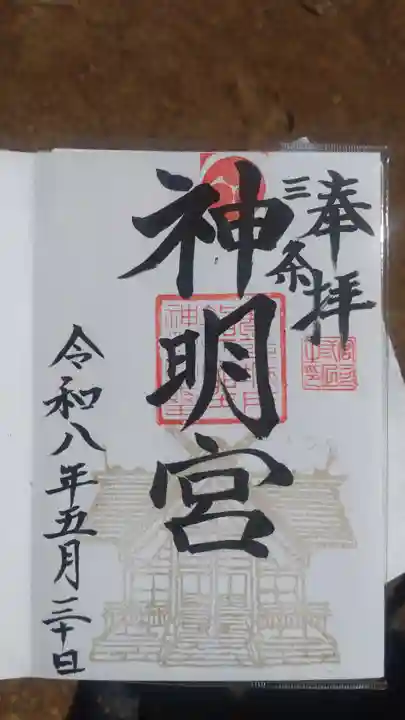 奉拝
三条
神明宮
令和八年五月三十日